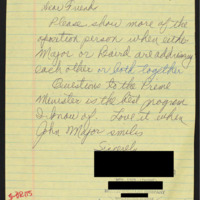 Dear Friend
Please show more of the
oposition person when either
Major or Baird are addressing
each other or both together
Questions to the Prime
Minister is the best program
I know of. Love it when
John Major smiles